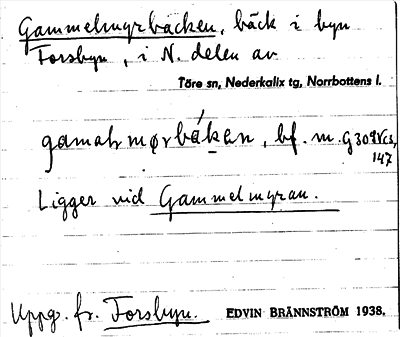 Gammelmyrbäcken, bäck i byn
Forsbyn, i N. delen av
Töre sn, Nederkalix tg, Norrbottens l.
bf. m.
147
Ligger vid Gammelmyran.
Uppg. fr. Forsbyn. EDVIN BRÄNNSTRÖM 1938.